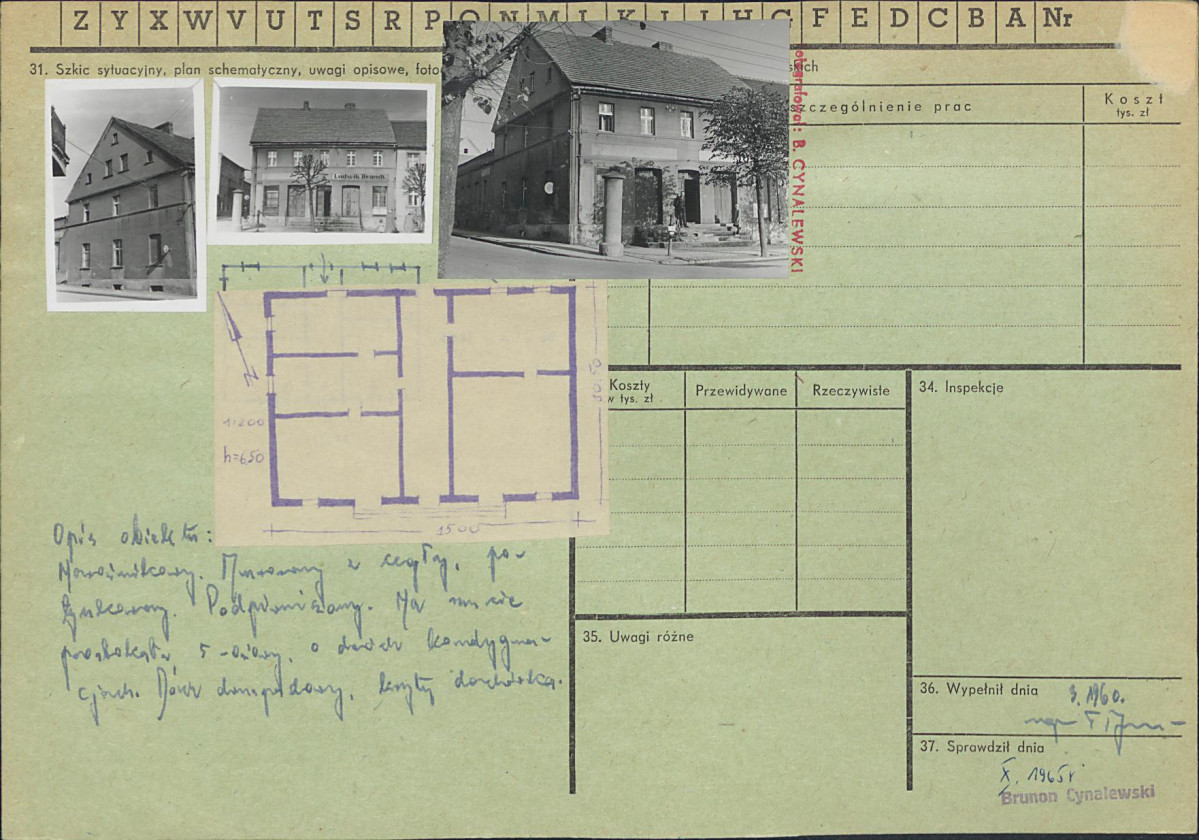 Z Y X W V U T S R P O N M L K J I H G F E D C B A Nr
31. Szkic sytuacyjny, plan schematyczny, uwagi opisowe, foto
skich
Ludwik Brandt
fotografował: B. CYNALEWSKI
szczególnienie prac
Koszt
tys. zł
N
1:200
h=650
1050
1500
Koszty
w tys. zł
Przewidywane
Rzeczywiste
34. Inspekcje
Opis obiektu:
Murowany z cegły, po-
tynkowany. Podpiwniczony. Na rzucie
prostokąta, 5-osiowy, o dwóch kondygna-
cjach. Dach dwuspadowy, kryty dachówką.
35. Uwagi różne
36. Wypełnił dnia
1960.
mgr
37. Sprawdził dnia
X. 1965 r
Brunon Cynalewski